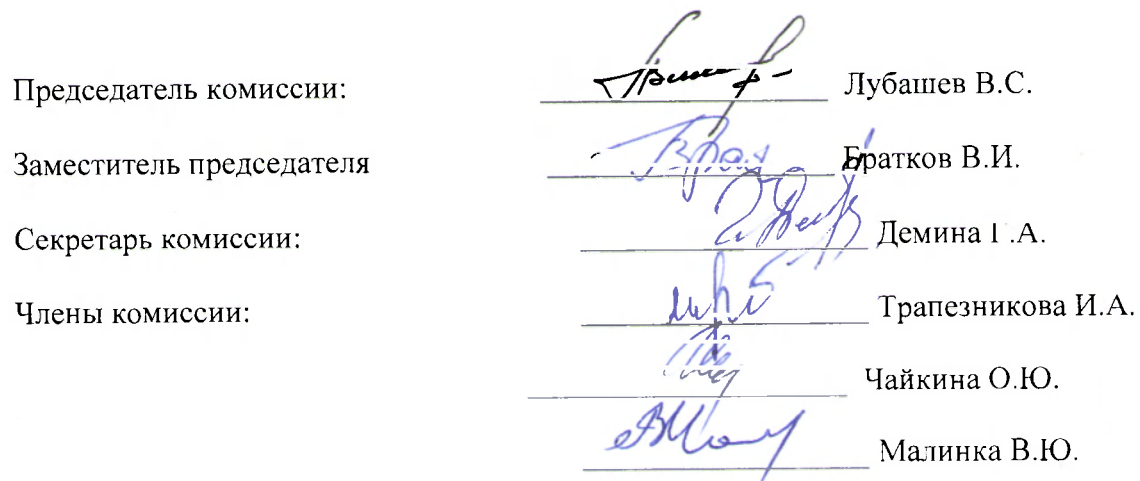 Председатель комиссии: Лубашев В.С.
Заместитель председателя Братков В.И.
Секретарь комиссии: Демина Г.А.
Члены комиссии: Трапезникова И.А.
Чайкина О.Ю.
Малинка В.Ю.